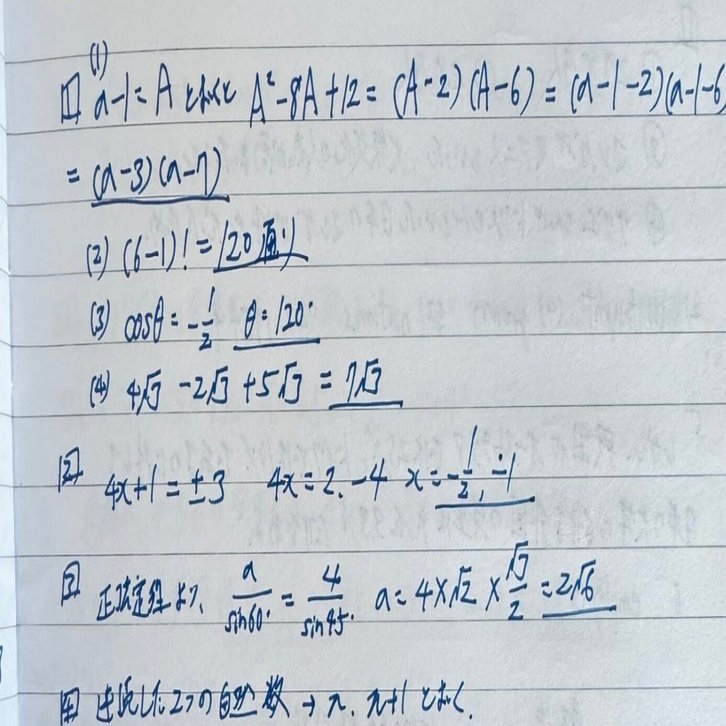 (1)
1 a-1=A とおくと A²-8A+12=(A-2)(A-6)=(a-1-2)(a-1-6
=(a-3)(a-7)
(2) (6-1)!=120通り
(3) cosθ=-1/2 θ=120°
(4) 4√3 -2√3 +5√3 =7√3
2 4x+1=±3 4x=2.-4 x=-1/2,-1
3 正弦定理より、 a/sin60°=4/sin45° a=4×√2×√3/2=2√6
4 連続した2つの自然数→n.n+1とおく.